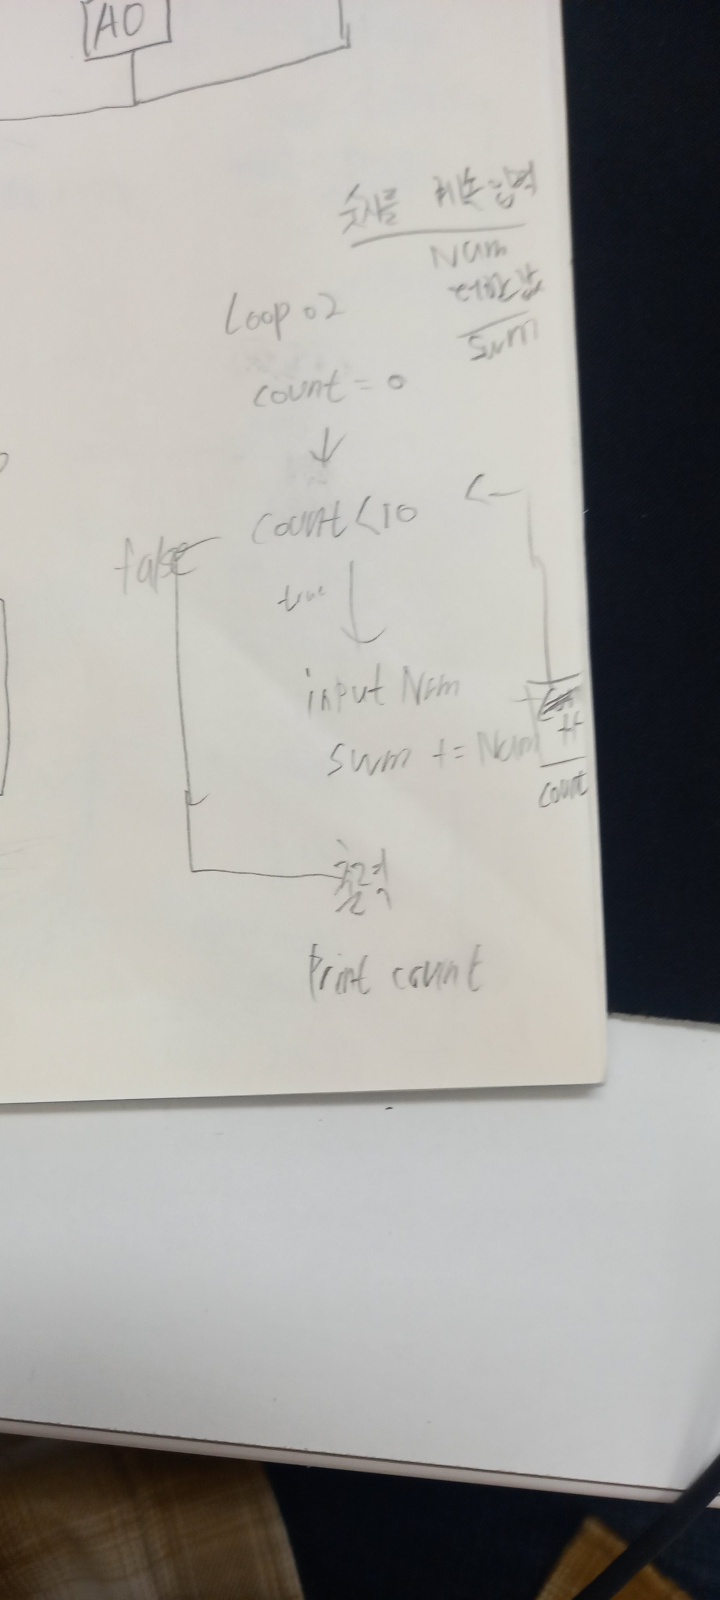 A0
숫자를 계속 입력
Num
더한 값
sum
Loop 02
count = 0
count < 10
false
true
input Num
sum += Num
++
count
출력
Print count